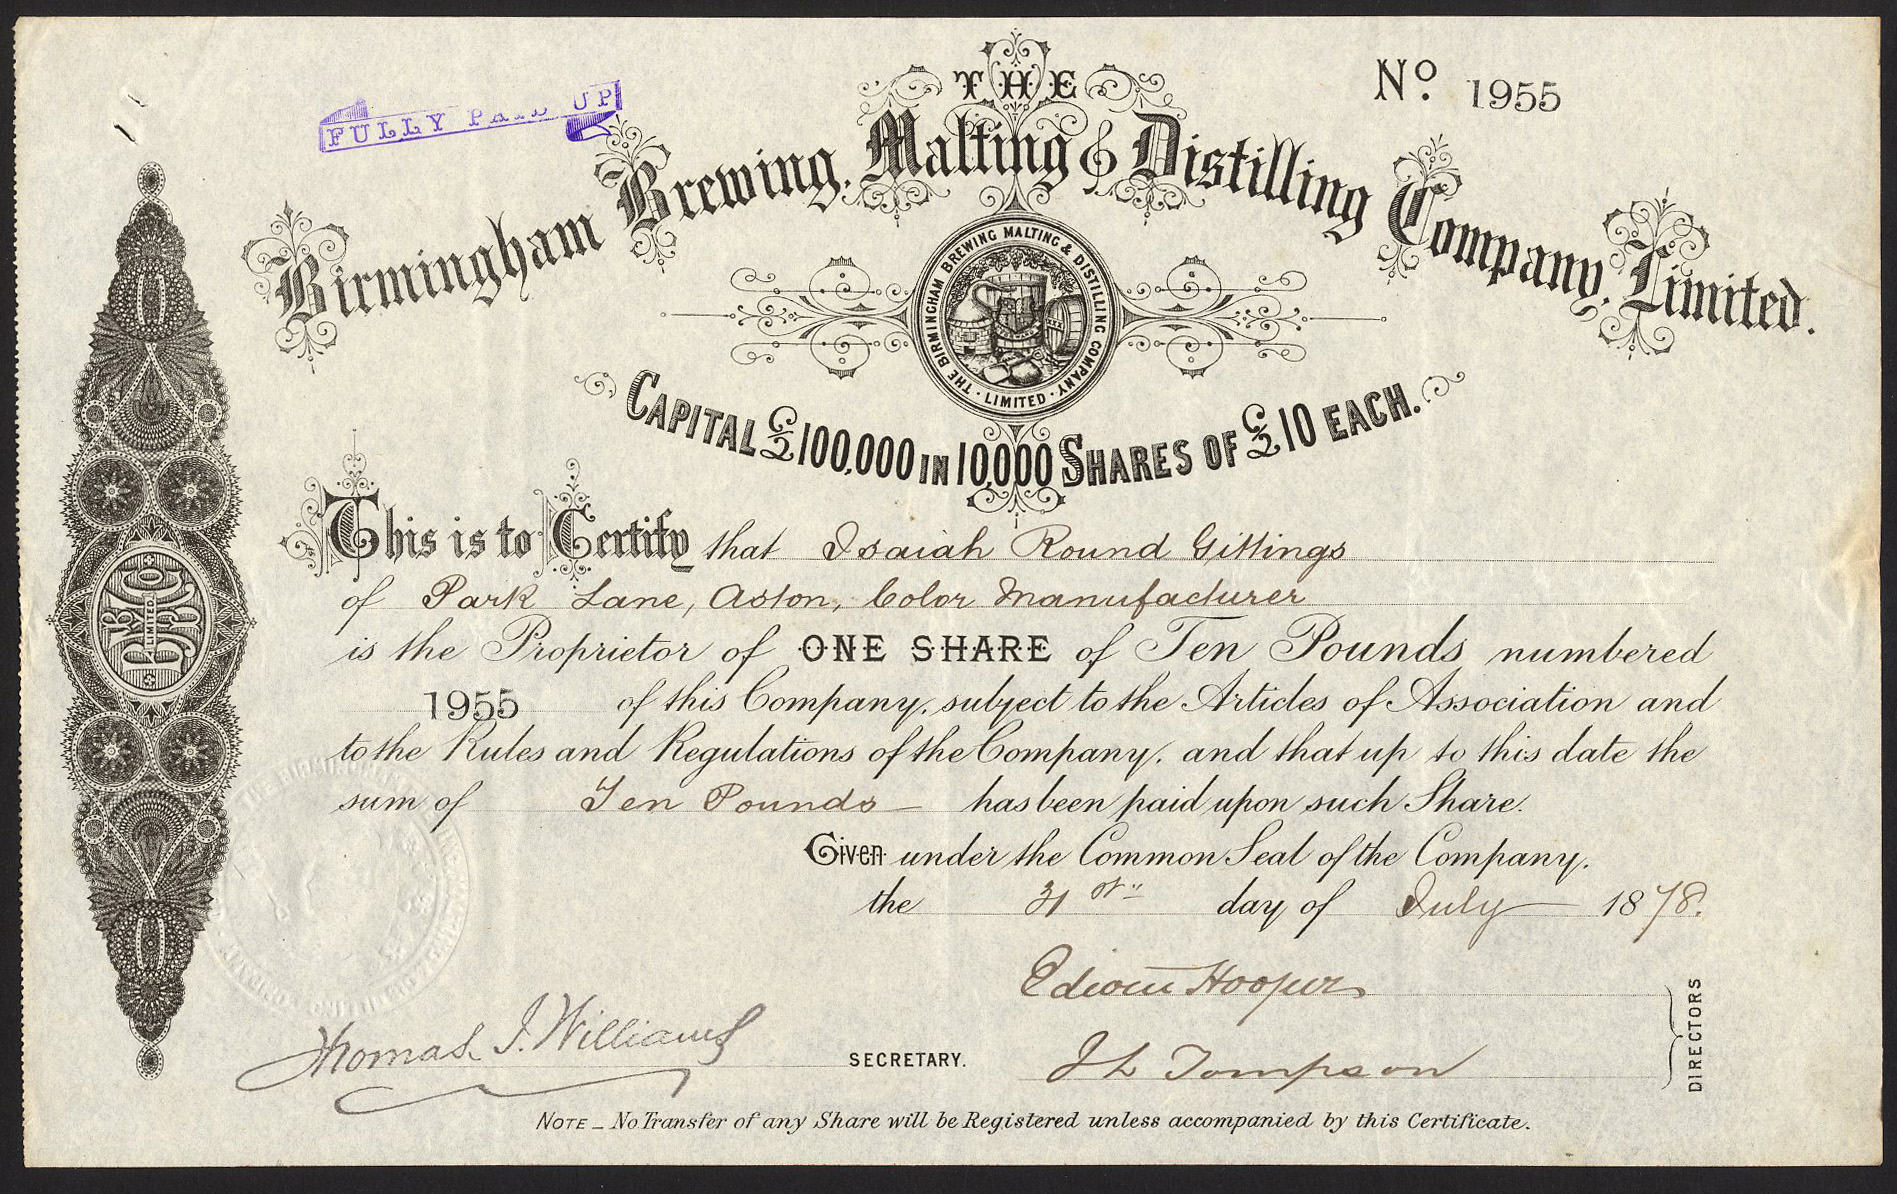 No. 1955
FULLY PAID UP
THE
Birmingham Brewing, Malting & Distilling Company, Limited.
THE BIRMINGHAM BREWING MALTING & DISTILLING COMPANY · LIMITED ·
CAPITAL £100,000 IN 10,000 SHARES OF £10 EACH.
This is to Certify that Isaiah Round Gittings
of Park Lane, Aston, Color Manufacturer
is the Proprietor of ONE SHARE of Ten Pounds numbered
1955 of this Company, subject to the Articles of Association and
to the Rules and Regulations of the Company, and that up to this date the
sum of Ten Pounds — has been paid upon such Share.
Given under the Common Seal of the Company,
the 31st day of July 1878.
Edwin Hooper
Thomas J. Williams SECRETARY.
J L Tompson
DIRECTORS
LIMITED
NOTE _ No Transfer of any Share will be Registered unless accompanied by this Certificate.